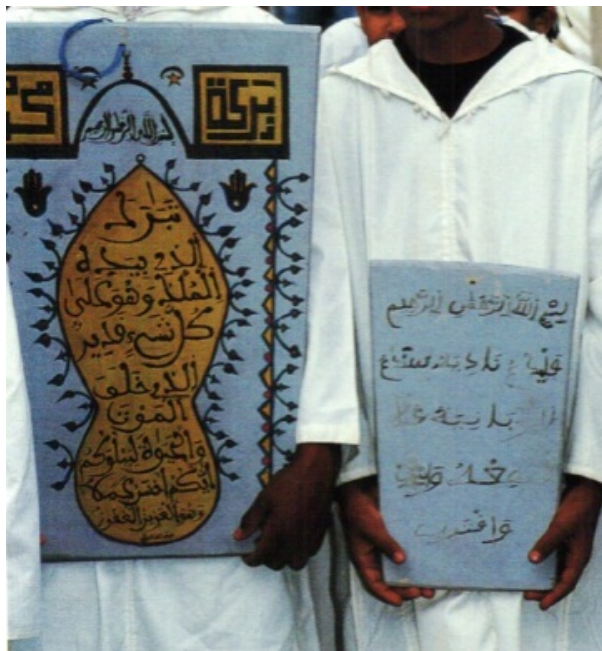 بركة
بسم الله الرحمن الرحيم
تبرك
الذي بيده
الملك وهو على
كل شيء قدير
الذي خلق
الموت
والحيوة ليبلوكم
أيكم أحسن عملا
وهو العزيز الغفور
بسم الله الرحمن الرحيم
فليدع ناديه سندع
الزبانية كلا
واقترب